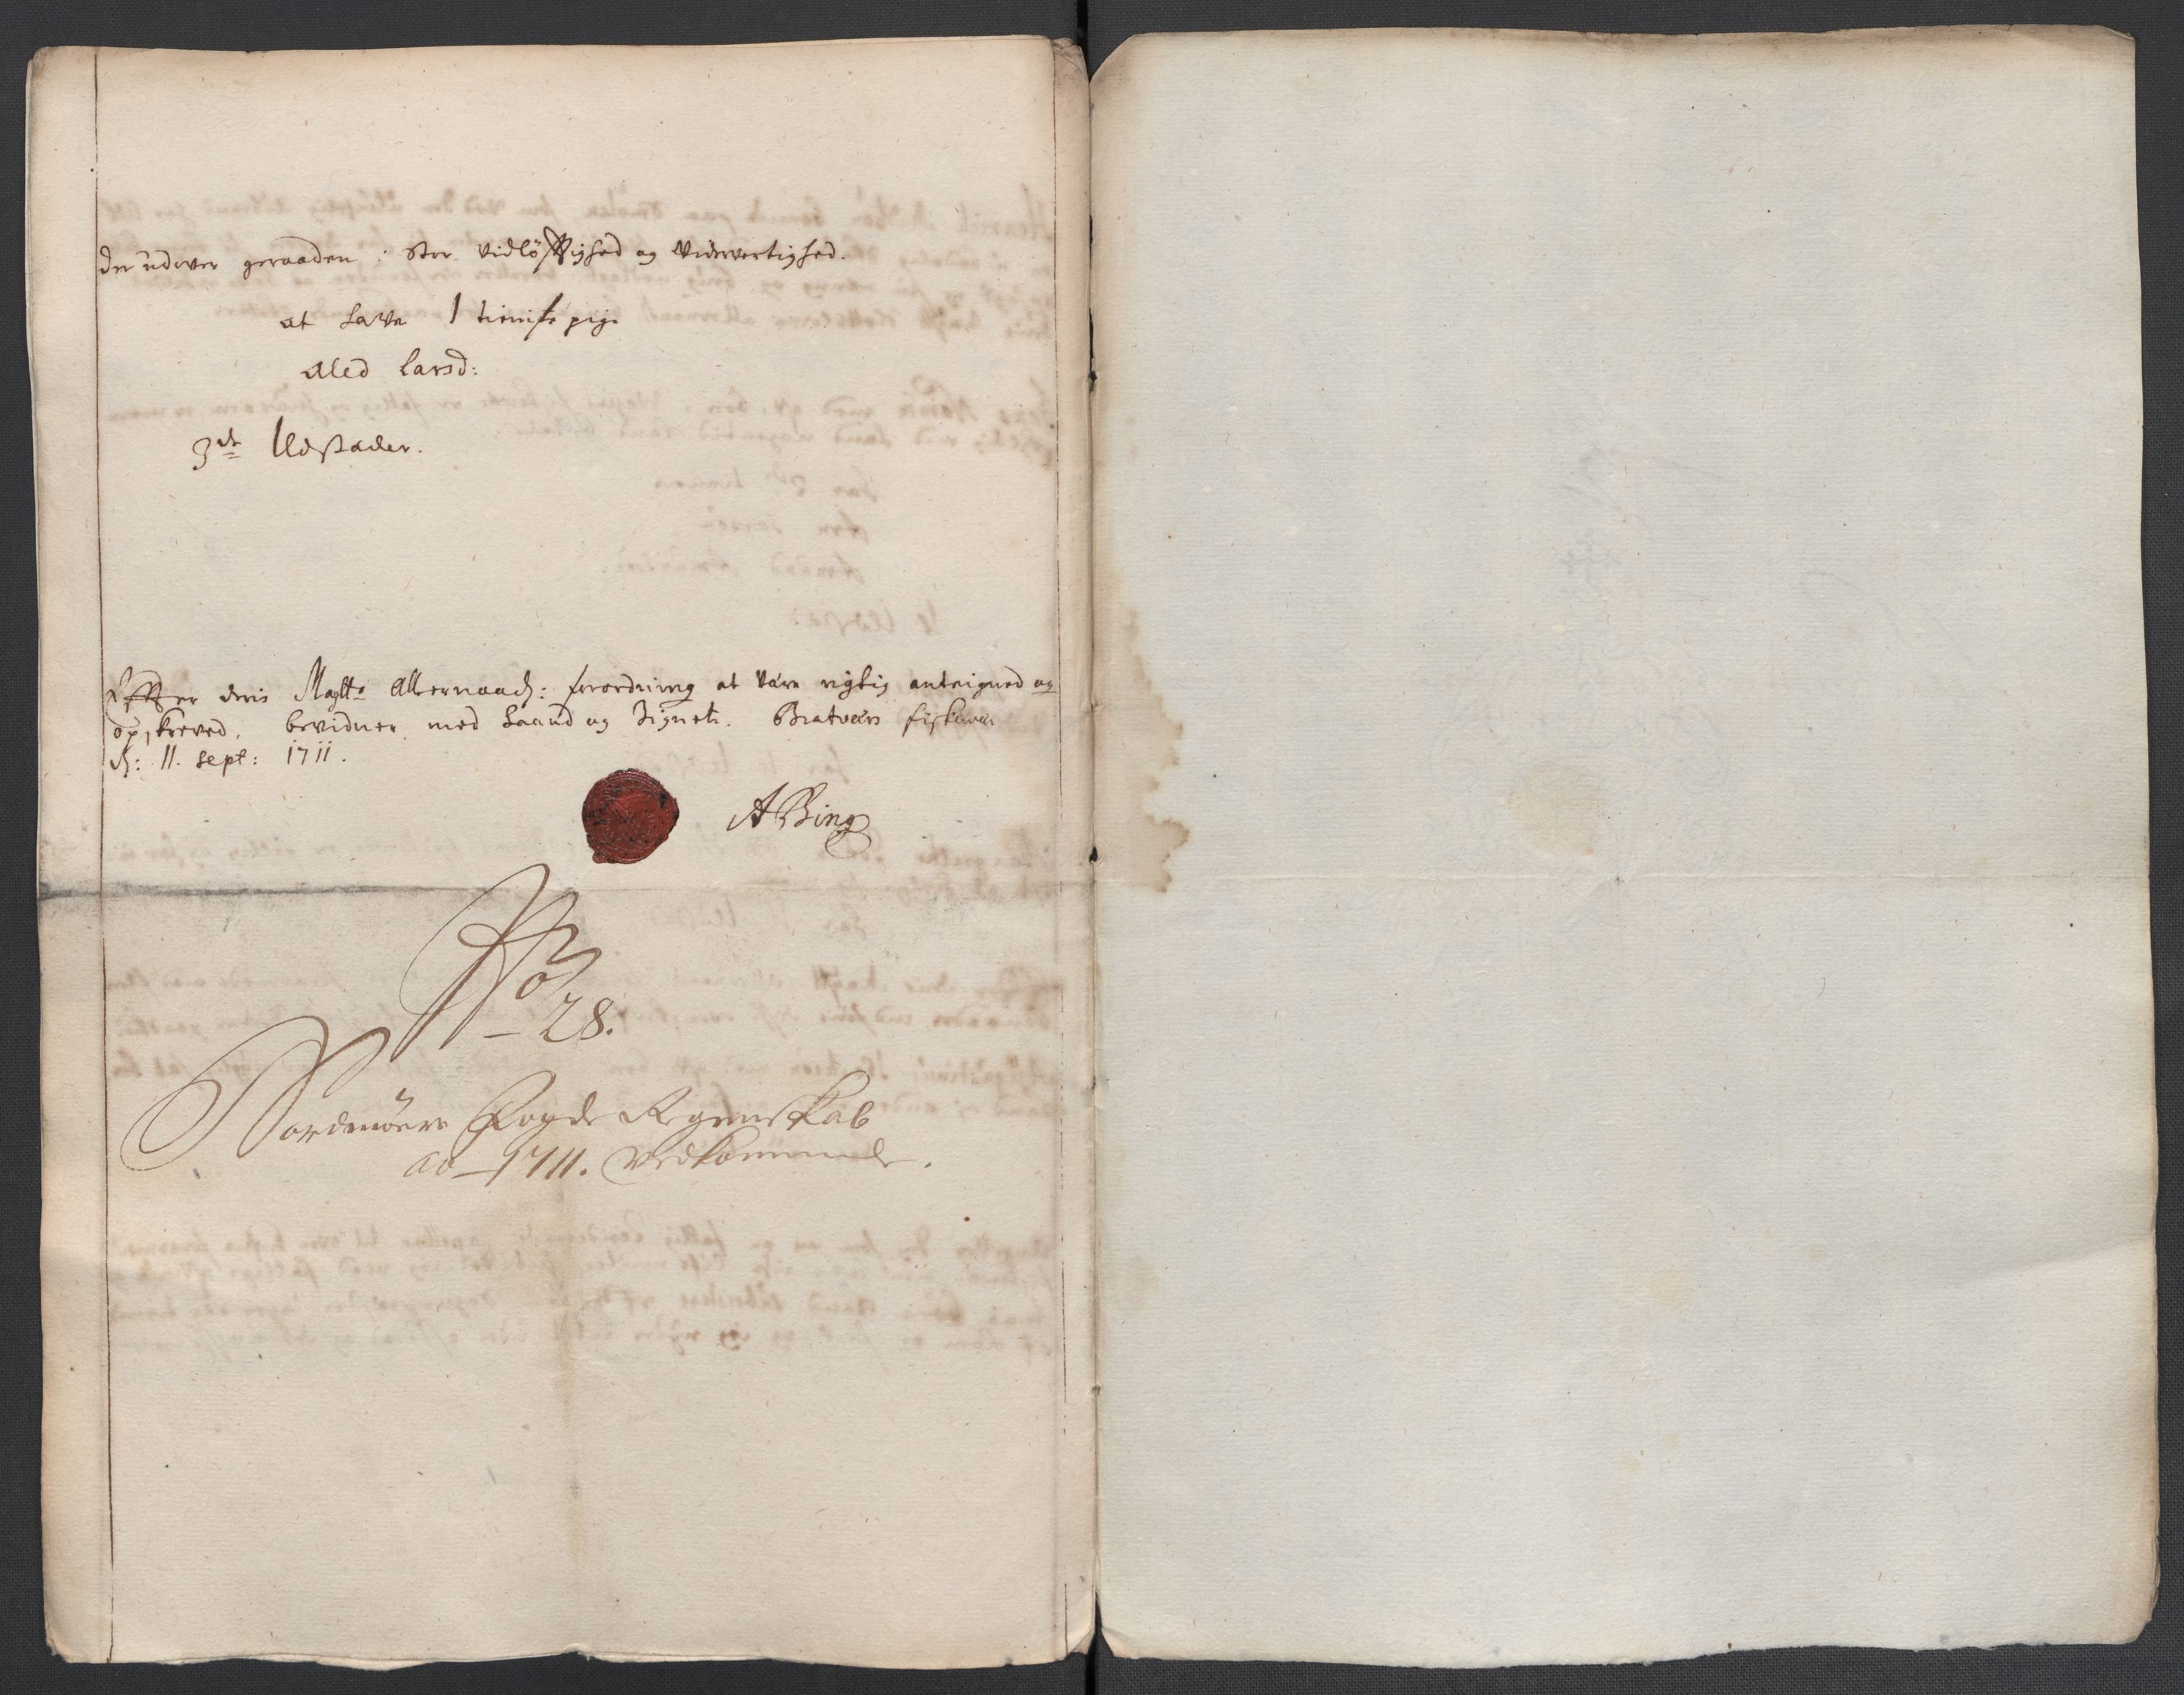 der udover geraaden i stor vidløftighed og viderwertighed.
at have 1 tieniste pige
Aled Larsd:
3de Ildstæder.
Efter deris Maytts Allernaad: forordning at være rigtig anteigned og
opskreved, bevidner med haand og Signete. Bratvær fiskevær
d: 11. sept: 1711.
ABing
No
28.
Nordmøers Fogde Regenskab
ao 1711. vedkommende.